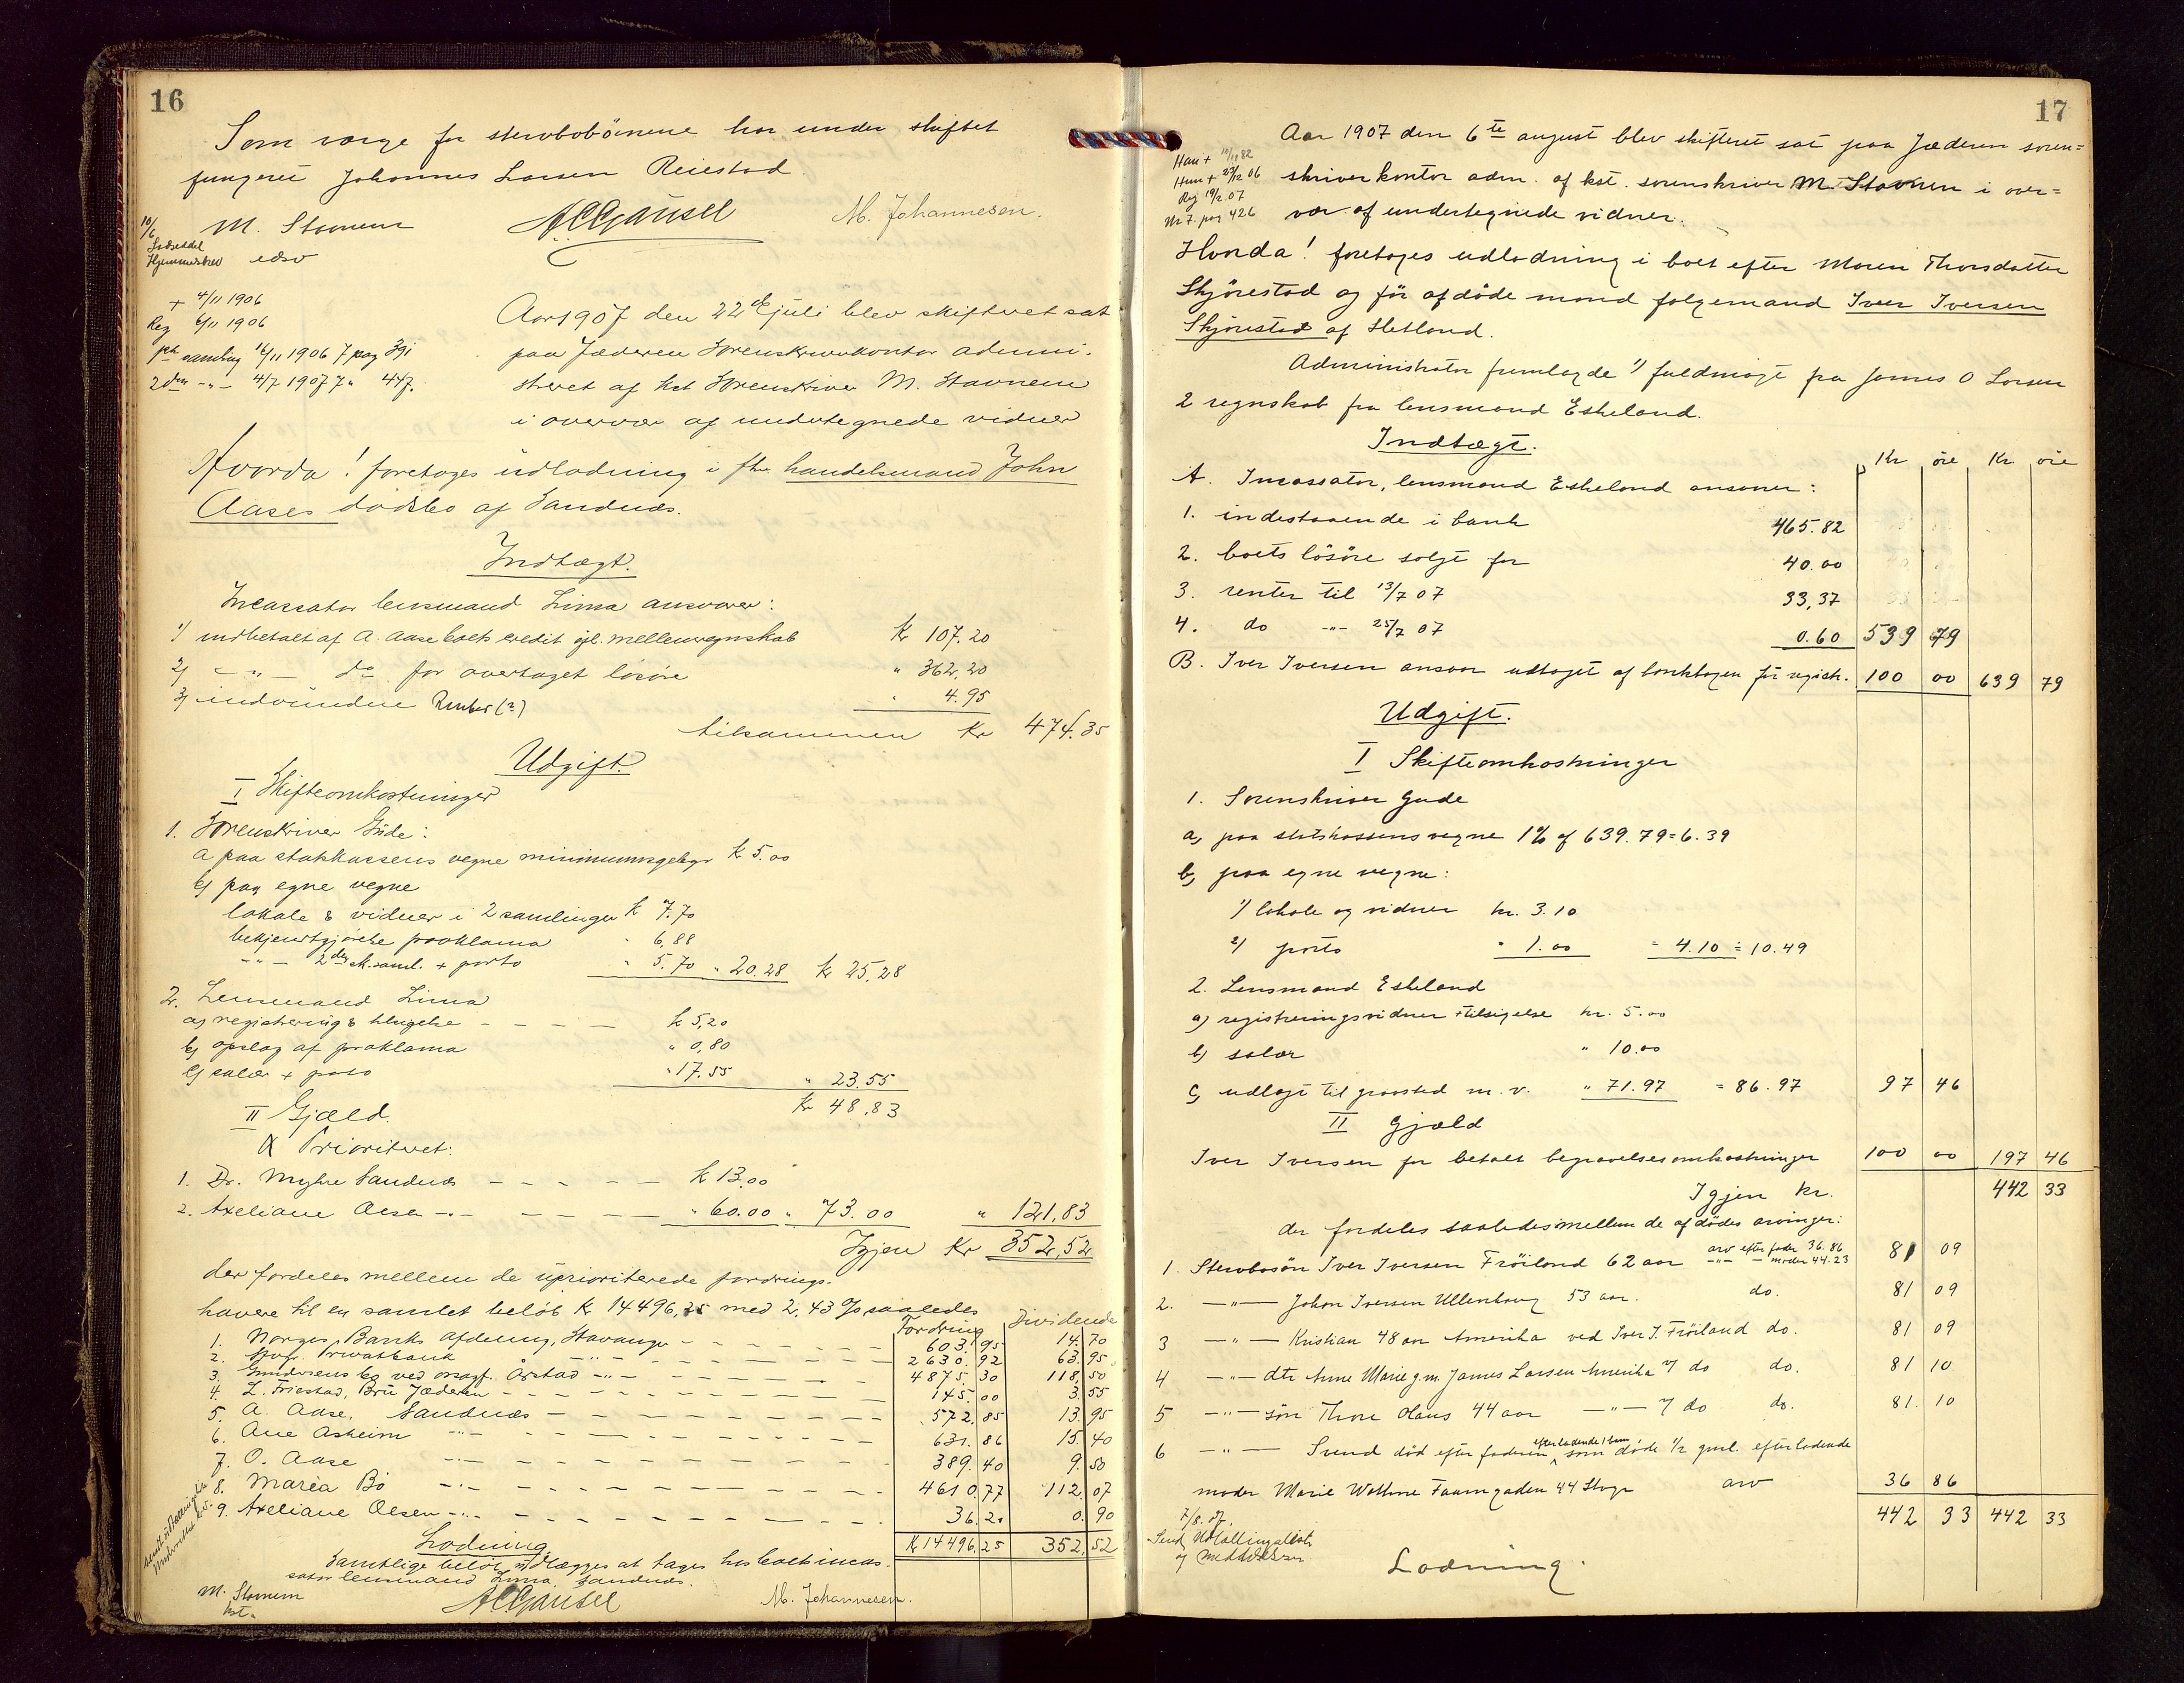 16
Som værge for stervbobörnene har under skiftet
fungeret Johannes Larsen Reiestad.
10/6 M. Stavnem ACGausel M. Johannesen.
Lodseddel
Hjemmelsbrev edsv
+ 4/11 1906
Reg 6/11 1906
pr samling 16/11 1906 7 pag 391
2den -"- 4/7 1907 7 " 447.
Aar 1907 den 22de juli blev skifteret sat
paa Jæderen Sorenskriverkontor admini-
streret af kst Sorenskriver M. Stavnem
i overvær af undertegnede vidner
Hvorda! foretages udlodning i fhv. handelsmand John
Aases dödsbo af Sandnæs.
Indtægt.
Incassator lensmand Lima ansvarer:
1) indbetalt af A. Aase boets credit ifl. mellemregnskab Kr 107.20
2) -"- do for overtaget lösöre " 362,20
3) indvundne Renter (?) " 4.95
tilsammen Kr 474.35
Udgift.
I Skifteomkostninger
1. Sorenskriver Gude:
a paa statskassens vegne minimumsgebyr k 5.00
b) paa egne vegne
lokale & vidner i 2 samlinger k 7.70
bekjendtgjörelse proklama " 6,88
-"- 2den sk.saml. + porto " 5.70 " 20.28 k 25,28
2. Lensmand Lima
a) registrering & tilsigelse - - - k 5,20
b) opslag af proklama " 0,80
c) salær + porto " 17.55 " 23.55
Kr 48,83
II Gjæld.
A Prioritert:
1. Dr. Myhre Sandnæs - - - - - k 13,00
2. Axeliane Olsen -"- - - - - " 60.00 " 73.00 " 121,83
Igjen Kr 352,52
der fordeles mellem de uprioriterede fordrings-
havere til en samlet beløb Kr 14496,25 med 2,43 % saaledes
Fordring Dividende
1. Norges Banks afdeling, Stavanger - - - 603.95 14.70
2. Stvgr. Privatbank - - - 2630.92 63.95
3. Gundersens bo ved orsagf. Aarstad -"- - - 4875.30 118.50
4. L. Friestad, Bru Jæderen - - - 145.00 3.55
5. A. Aase, Sandnæs - - - 572.85 13.95
6. Ane Asheim -"- - - - 631.86 15.40
7. O. Aase -"- - - - 389.40 9.50
8. Maria Bö -"- - - - 4610.77 112.07
9. Axeliane Olsen -"- - - - 36.20 0.90
Lodning K 14496.25 352.52
Samtlige beløb udlægges at tages hos boets incas-
sator lensmand Lima, Sandnæs.
M. Stavnem ACGausel M. Johannesen.
kst.
17
Aar 1907 den 6te august blev skifteret sat paa Jæderen soren=
Han + 10/11 82
Hun + 27/12 06
Reg 19/2 07
Nr 7. pag 426
skriverkontor adm. af kst. sorenskriver M. Stavnem i over=
vær af undertegnede vidner.
Hvorda! foretages udlodning i boet efter Maren Thorsdatter
Skjörestad og för afdöde mand folgemand Iver Iversen
Skjörestad af Hetland.
Administrator fremlagde 1) fuldmagt fra James O Larsen
2 regnskab fra lensmand Eskeland.
Indtægt.
Kr öre Kr. öre
A. Incassator, lensmand Eskeland ansvarer:
1. indestaaende i bank 465.82
2. boets lösöre solgt for 40.00
3. renter til 13/7 07 33,37
4. do -"- 25/7 07 0.60 539 79
B. Iver Iversen ansvar udtaget af bankbogen för registr. 100 00 639 79
Udgift.
I Skifteomkostninger
1. Sorenskriver Gude
a) paa statskassens vegne 1% af 639.79 = 6.39
b) paa egne vegne:
1) lokale og vidner kr. 3.10
2) porto " 1.00 = 4.10 = 10.49
2. Lensmand Eskeland
a) registreringsvidner + tilsigelse kr. 5.00
b) salær " 10.00
c) udlagt til gravsted m. v. " 71.97 = 86.97 97 46
II Gjæld
Iver Iversen for betalt begravelsesomkostninger 100 00 197 46
Igjen Kr. 442 33
der fordeles saaledes mellem de afdödes arvinger:
1. Stervbosön Iver Iversen Fröiland 62 aar arv efter fader 36.86 81 09
-"- - moder 44.23
2. -"- Johan Iversen Ullenhaug 53 aar. do. 81 09
3 -"- Kristian 48 aar Amerika ved Iver I. Fröiland do. 81 09
4 -"- dtr Anne Marie g.m. James Larsen Amerika 7 do do. 81 10
5 -"- sön Thore Olaus 44 aar -"- 7 do do. 81.10
6 -"- Svend död efter faderen efterladende 1 barn, som döde 1/2 gml. efterladende
moder Marie Wathne Faamgaden 44 Stvgr arv 36 86
442 33 442 33
7/8. 07.
Send Udtallingsliste
og meddelelser
Lodning.